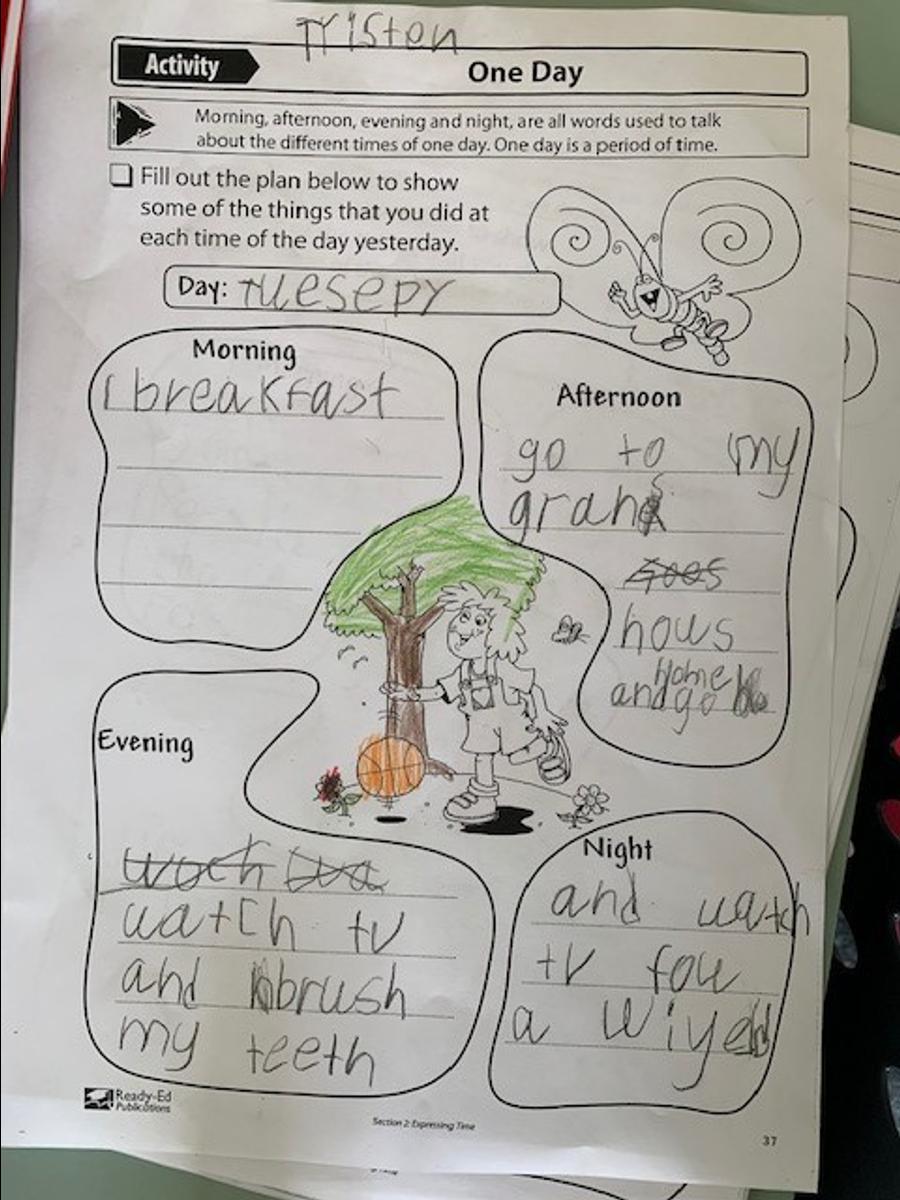 Tristen
Activity
One Day
Morning, afternoon, evening and night, are all words used to talk
about the different times of one day. One day is a period of time.
Fill out the plan below to show
some of the things that you did at
each time of the day yesterday.
Day: TUESEPY
Morning
I breakfast
Afternoon
go to my
grand
hous
Home
and go
Evening
watch tv
and brush
my teeth
Night
and watch
tv fow
a wiyed
Ready-Ed
Publications
Section 2: Expressing Time
37